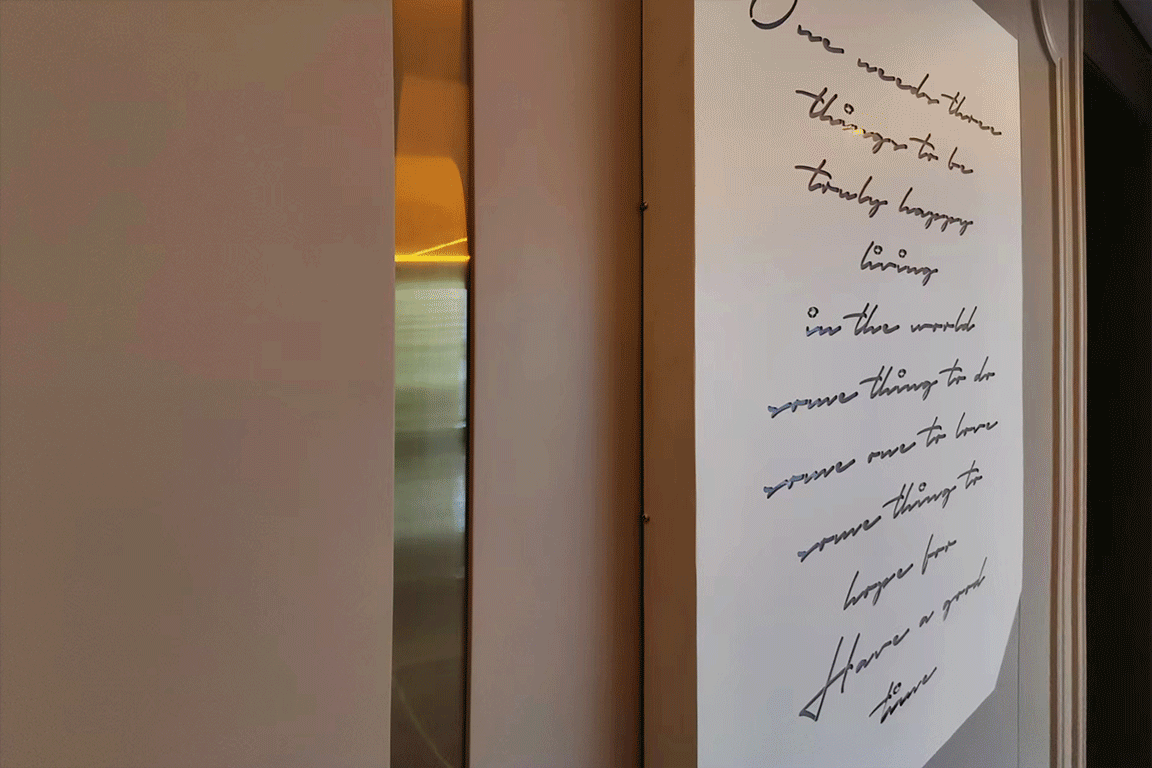 One needs three
things to be
truly happy
living
in the world
some thing to do
some one to love
some thing to
hope for
Have a good
time